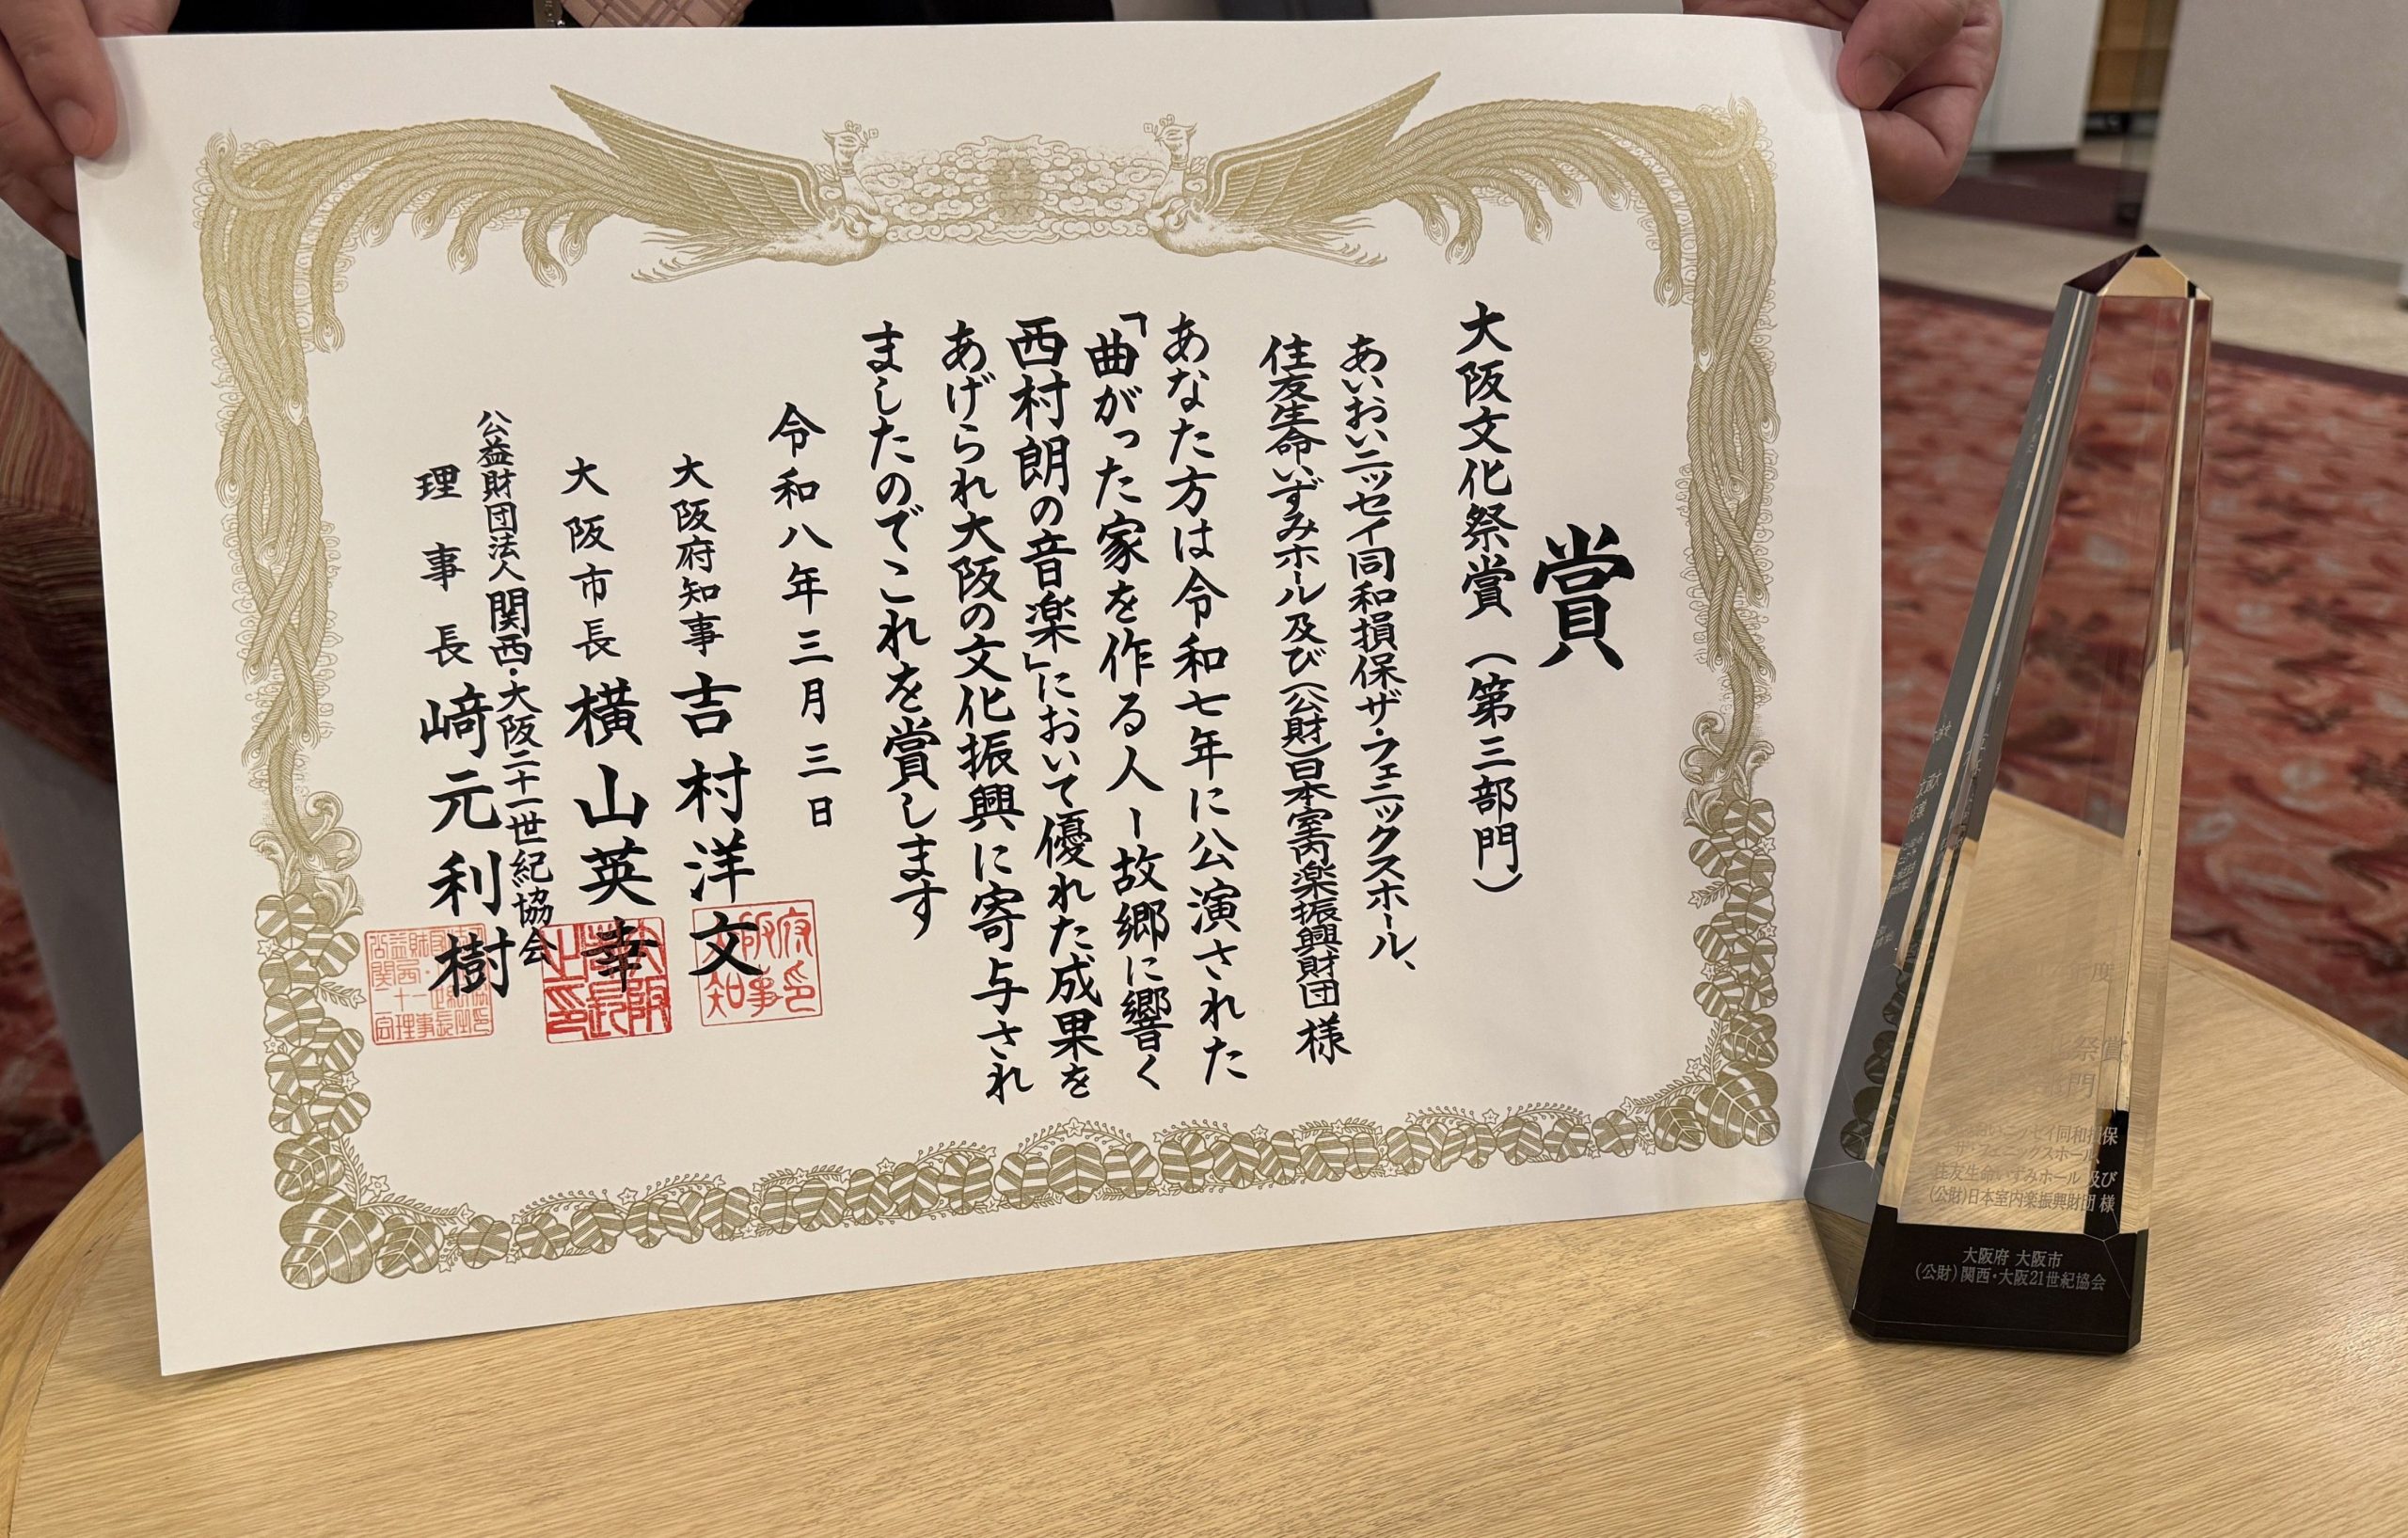 賞
大阪文化祭賞（第三部門）
あいおいニッセイ同和損保ザ・フェニックスホール、
住友生命いずみホール及び（公財）日本室内楽振興財団様
あなた方は令和七年に公演された
「曲がった家を作る人ー故郷に響く
西村朗の音楽」において優れた成果を
あげられ大阪の文化振興に寄与され
ましたのでこれを賞します
令和八年三月三日
大阪府知事 吉村洋文
大阪市長 横山英幸
公益財団法人関西・大阪二十一世紀協会
理事長 﨑元利樹
年度
化祭賞
門
セイ同和損保
ザ・フェニックスホール、
住友生命いずみホール 及び
(公財)日本室内楽振興財団 様
大阪府 大阪市
(公財) 関西・大阪21世紀協会